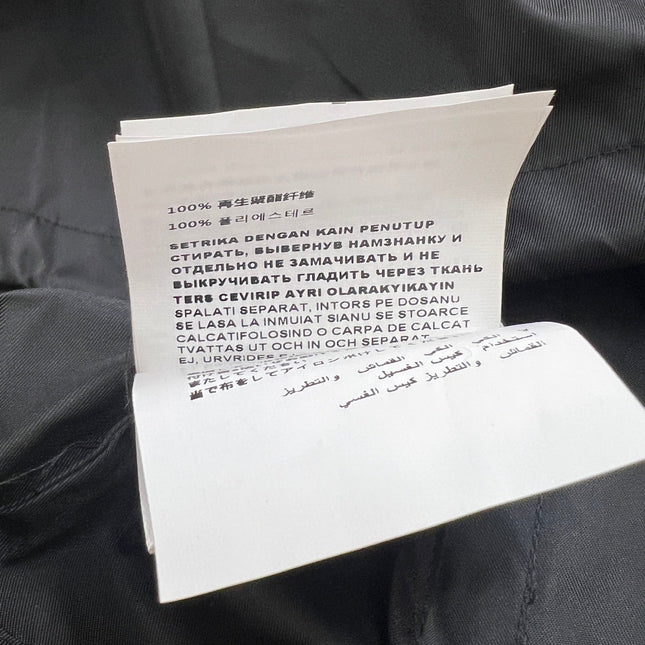 100% 再生聚酯纤维
100% 폴리에스테르
SETRIKA DENGAN KAIN PENUTUP
СТИРАТЬ, ВЫВЕРНУВ НАМЗНАНКУ И
ОТДЕЛЬНО НЕ ЗАМАЧИВАТЬ И НЕ
ВЫКРУЧИВАТЬ ГЛАДИТЬ ЧЕРЕЗ ТКАНЬ
TERS CEVIRIP AYRI OLARAKYIKAYIN
SPALATI SEPARAT, INTORS PE DOSANU
SE LASA LA INMUIAT SIANU SE STOARCE
CALCATIFOLOSIND O CARPA DE CALCAT
TVATTAS UT OCH IN OCH SEPARAT
EJ, URVRIDES
てください アイロン
で布をしてアイロン
استخدام كيس الغسيل والتطريز
القماش والتطريز كيس الغسي